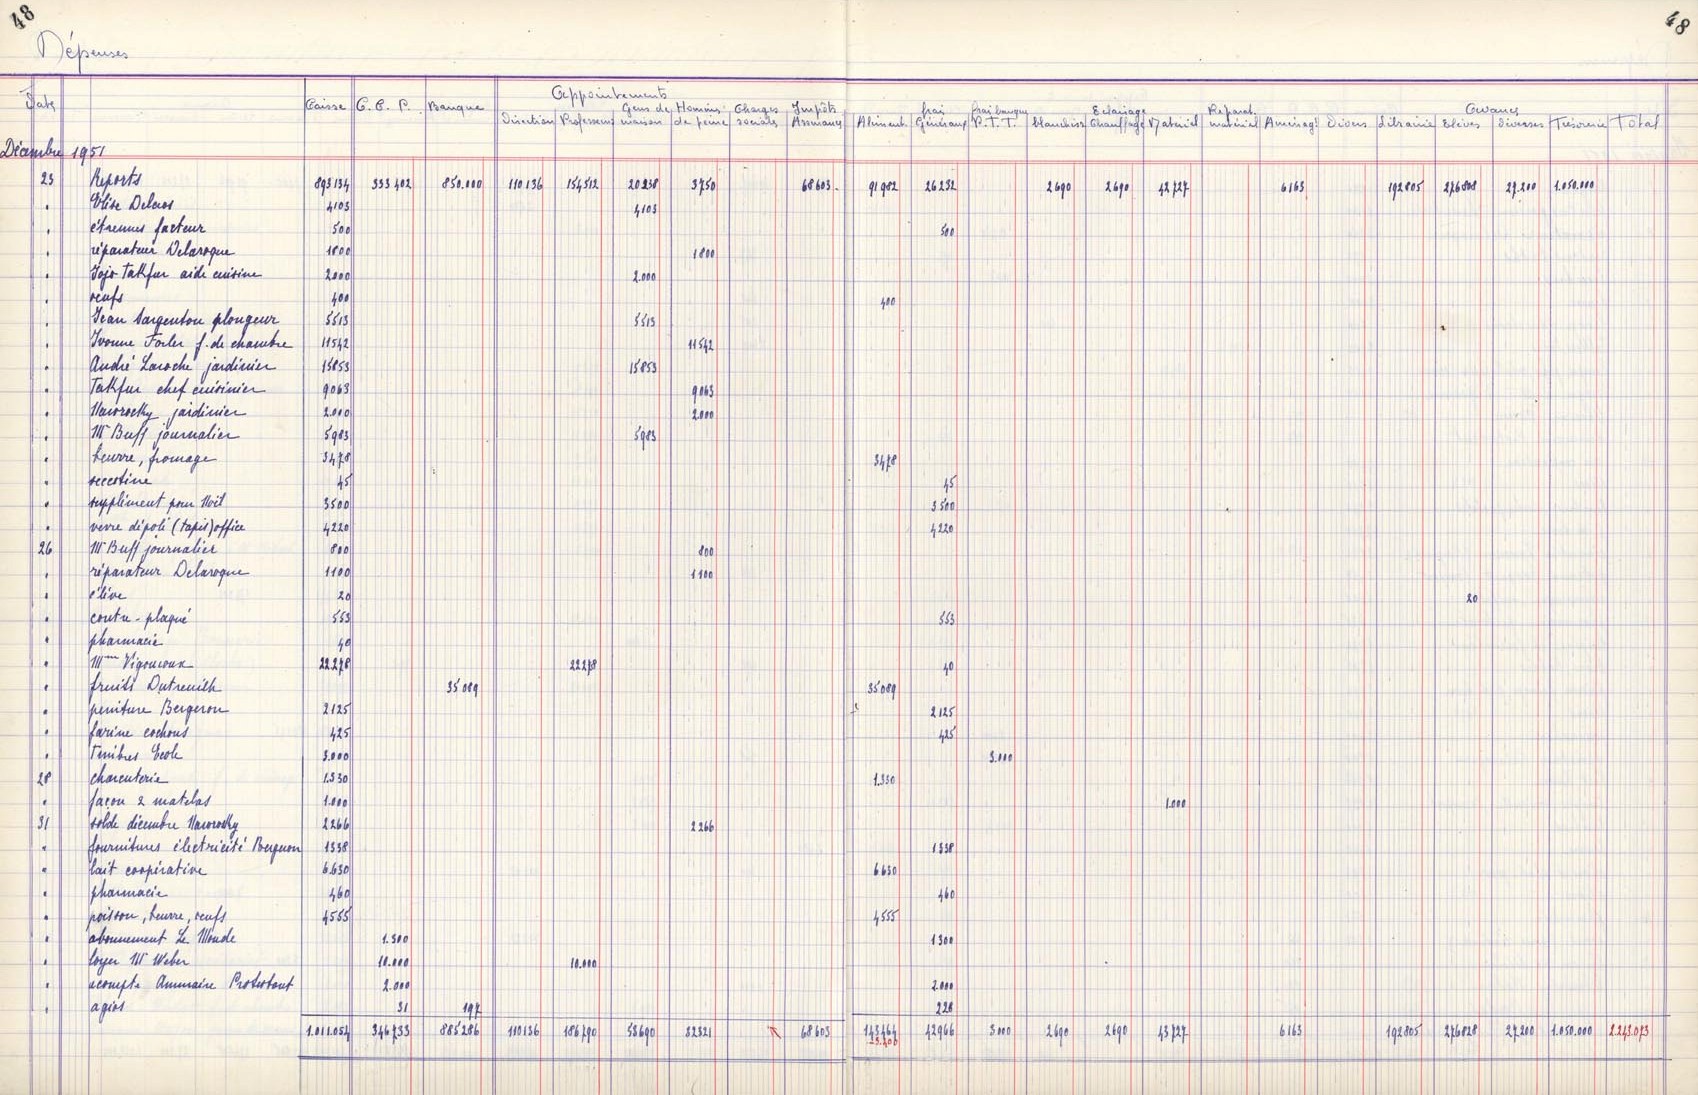 48
48
Dépenses
Appointements
Avances
Date Caisse C. C. P. Banque Direction Professeurs Gens de maison Hommes de peine Charges sociales Impôts Assurances Aliment. frais Généraux P.T.T. blanchiss. Eclairage Chauffage Matériel Réparat. matériel Aménagt Divers Librairie Elèves diverses Trésorerie Total
Décembre 1951
23 Reports 893134 333402 850.000 110136 154512 20238 3750 68603 91982 26232 2690 2690 42727 6163 192805 276808 27.200 1.050.000
" Elise Delcros 4103 4103
" étrennes facteur 500 500
" réparateur Delaroque 1800 1800
" Jojo Takfur aide cuisine 2000 2.000
" oeufs 400 400
" Jean Sargenton plongeur 5513 5513
" Yvonne f. de chambre 11542 11542
" André Laroche jardinier 15853 15853
" Takfur chef cuisinier 9063 9063
" jardinier 2.000 2.000
" Mr Buff journalier 5983 5983
" beurre, fromage 3478 3478
" seccotine 45 45
" supplément pour Noël 3500 3500
" verre dépoli (tapis) office 4220 4220
26 Mr Buff journalier 800 800
" réparateur Delaroque 1100 1100
" élève 20 20
" contre-plaqué 553 553
" pharmacie 40
" Mme Vigouroux 22278 22278 40
" fruits Dutreuilh 35089 35089
" peinture Bergeron 2125 2125
" farine cochons 425 425
" Timbres Ecole 3.000 3.000
28 charcuterie 1.330 1.330
" façon 2 matelas 1.000 1.000
31 solde décembre 2266 2266
" fournitures électricité Bergeron 1338 1338
" lait coopérative 6.630 6630
" pharmacie 460 460
" poisson, beurre, oeufs 4555 4555
" abonnement Le Monde 1.300 1300
" loyer Mr Weber 10.000 10.000
" acompte Annuaire Protestant 2.000 2.000
" agios 31 197 228
1.011.054 346733 885286 110136 186790 53690 32321 68603 143464 42966 3000 2690 2690 43727 6163 192805 276828 27.200 1.050.000 2.243.073